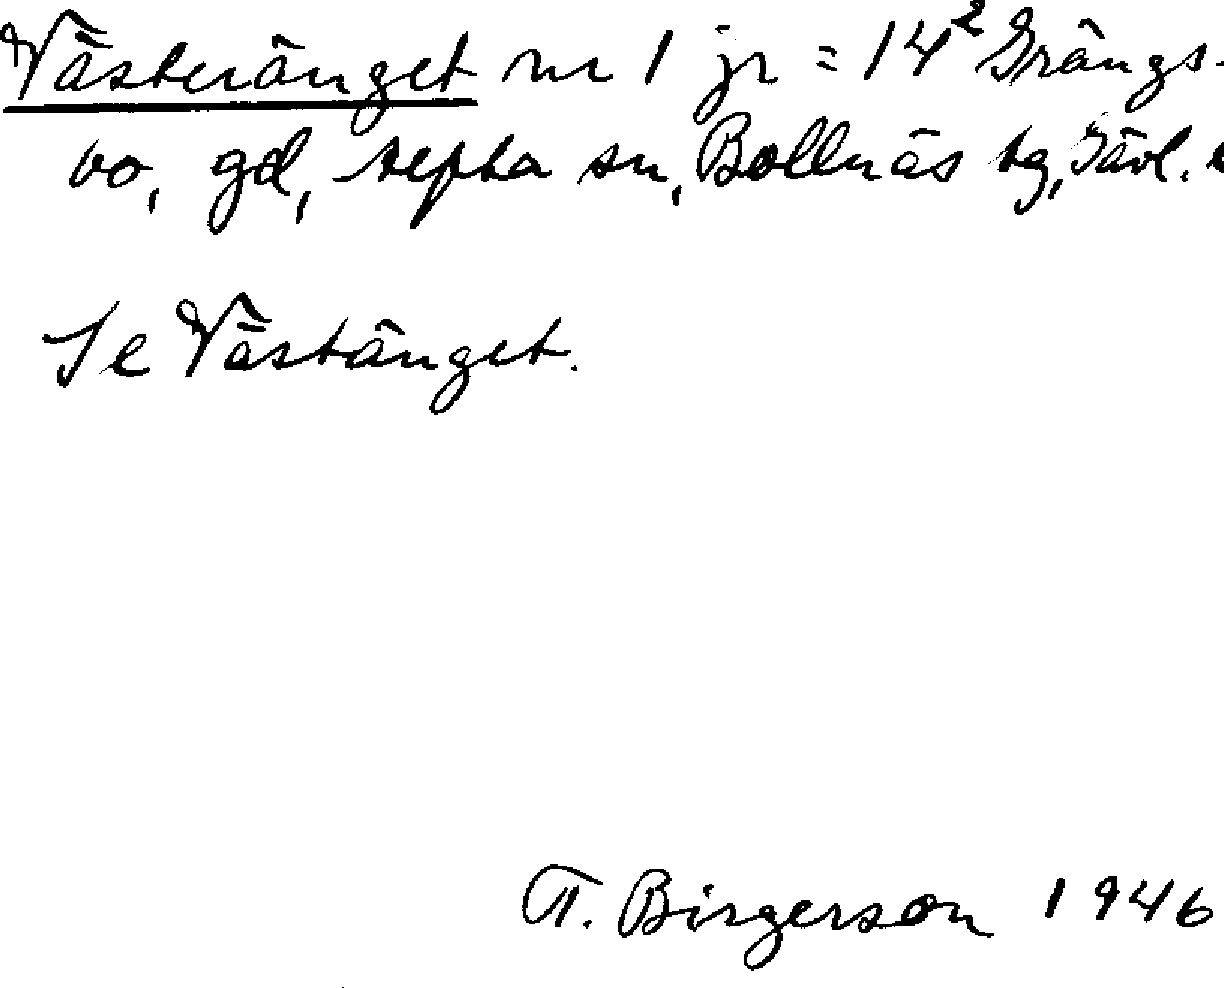 Västeränget nr 1 jr = 14² Grängs-
bo, gd, Alfta sn, Bollnäs tg, Gävl.
Se Västänget.
T. Birgerson 1946